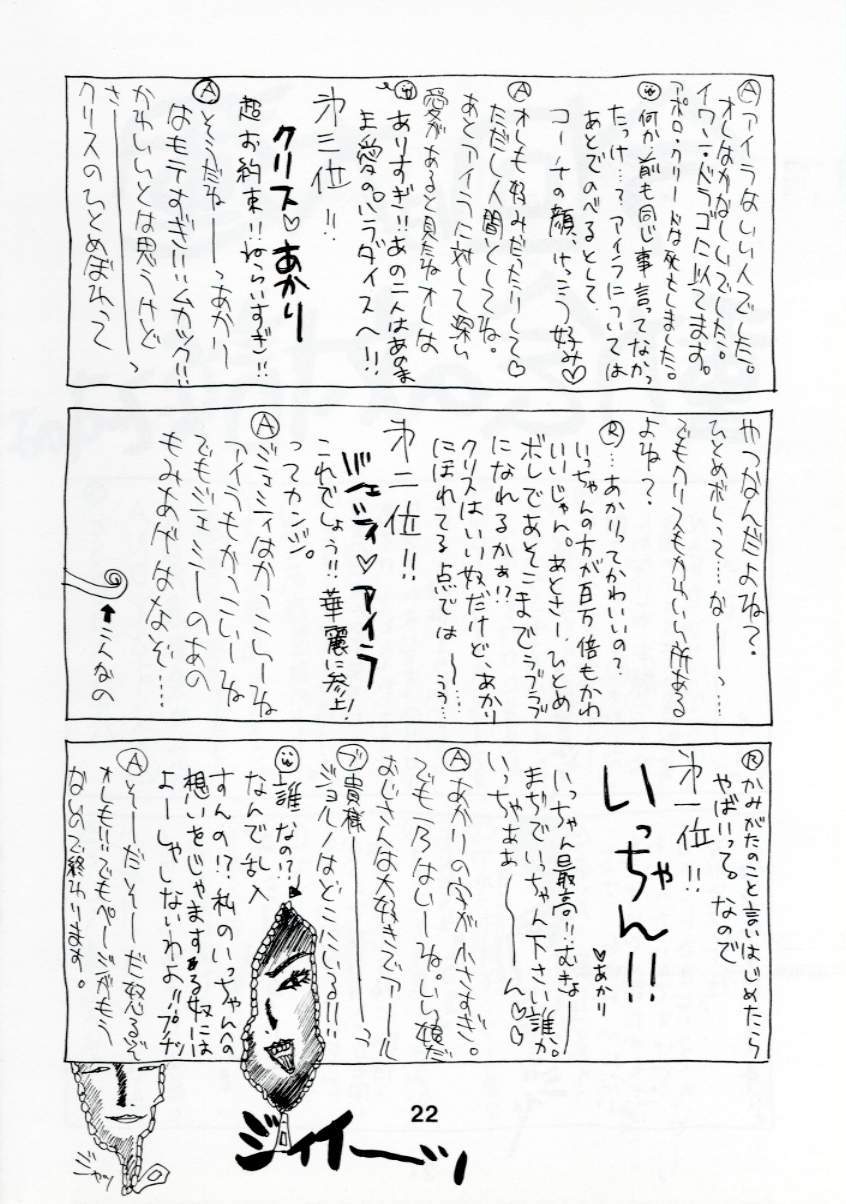 Ⓐアイラはいい人でした。
オレはかなしいでした。
イワン・ドラゴに似てます。
アポロ・クリードは死にました。
何か前も同じ事言ってなかっ
たっけ…？アイラについては
あとでのべるとして、
コーチの顔、けっこう好み♡
Ⓐオレも好みだったりして♡
ただし人間としてね。
あとアイラに対して深い
愛があると見たねオレは
ありすぎ!!あの二人はあのま
ま愛のパラダイスへ!!
第三位!!
クリス♡あかり
超お約束!!ねらいすぎ!!
Ⓐそうだねーーっあかり
はモテすぎ!!!ムカック!!!
かわいいとは思うけど
さ―――っ
クリスのひとめぼれって
やつなんだよね？
ひとめボレって…なーーっ…
でもクリスもかわいい所ある
よね？
Ⓡ…あかりってかわいいの？
いっちゃんの方が百万倍もかわ
いいじゃん。あとさー、ひとめ
ボレであそこまでラブラブ
になれるかぁ!?
クリスはいい奴だけど、あかり
にほれてる点では〜…。
うぅ…
第二位!!
ジェシィ♡アイラ
これでしょう!!華麗に参上!
ってカンジ。
Ⓐジェシィはかっこいーね
アイラもかっこいーね
でもジェシーのあの
もみあげはなぞ…
↑こんなの
Ⓡかみがたのこと言いはじめたら
やばいって。なので
第一位!!
いっちゃん!!
♡あかり
いっちゃん最高!!むきょー
まぢでいっちゃん下さい誰か。
いっちゃあぁ―――ん♡♡
Ⓐあかりの字が小さすぎ。
でも一乃はいーね。いい娘だ
おじさんは大好きでアール
―――――っ
ブ貴様
ジョルノはどこにいる!!!
誰なの!?
なんで乱入
すんの!?私のいっちゃんへの
想いをじゃまする奴には
よーしゃしないわよ!!プチッ
Ⓐそーだそーだ怒るぞ
オレも!!!でもページがもう
ないので終わります。
22
ジィイーッ
ジャッ